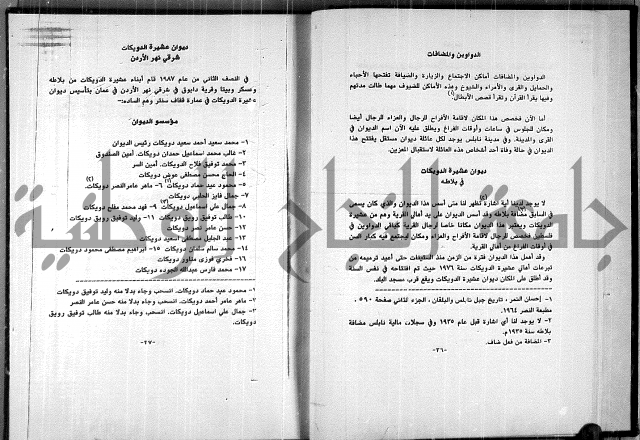 الدواوين والمضافات
الدواوين والمضافات أماكن الاجتماع والزيارة والضيافة تفتحها الأحياء
والحمايل والقرى والأمراء والشيوخ وهذه الأماكن للضيوف مهما طالت مدتهم
وفيها يقرأ القرآن وتقرأ قصص الأبطال(١)
أما الآن فخصص هذا المكان لاقامة الأفراح للرجال والعزاء للرجال أيضا
ومكان للجلوس في ساعات أوقات الفراغ ويطلق عليه الآن اسم الديوان في
القرى والمدينة. وفي مدينة نابلس يوجد لكل عائلة ديوان مستقل يفتتح هذا
الديوان في حالة وفاة أحد أشخاص هذه العائلة لاستقبال المعزين.
ديوان عشيرة الدويكات
في بلاطه
لا يوجد لدينا أية اشارة تظهر لنا متى أسس هذا الديوان والذي كان يسمى
في السابق مضافة بلاطه وقد أسس الديوان على يد أهالي القرية وهم من عشيرة
الدويكات ويعتبر هذا الديوان مكانا خاصا لرجال القرية كباقي الدواوين في
فلسطين فخصص للرجال لاقامة الأفراح والعزاء ومكان يجتمع فيه كبار السن
في أوقات الفراغ من أهالي القرية.
وقد أهمل هذا الديوان فترة من الزمن منذ الستينات حتى أعيد ترميمه من
تبرعات أهالي عشيرة الدويكات سنة ١٩٧٦ حيث تم افتتاحه في نفس السنة
وقد أطلق على المكان ديوان عشيرة الدويكات ويقع قرب مسجد البلد.
١- إحسان النمر، تاريخ جبل نابلس والبلقاء، الجزء الثاني صفحة ٥٩٠،
مطبعة النصر ١٩٦٤.
٢- لا يوجد لنا أي اشارة قبل عام ١٩٣٥ وفي سجلات مالية نابلس مضافة
بلاطه سنة ١٩٣٥م.
٣- المضافة من فعل ضاف.
-٢٦-
ديوان عشيرة الدويكات
شرقي نهر الأردن
في النصف الثاني من عام ١٩٨٧ قام أبناء عشيرة الدويكات من بلاطه
وعسكر وبيتا وقرية دابوق في شرقي نهر الأردن في عمان بتأسيس ديوان
عشيرة الدويكات في عمارة قفاف سنتر وهم السادة:-
مؤسسو الديوان
١- محمد سعيد أحمد سعيد دويكات رئيس الديوان
٢- غالب محمد اسماعيل حمدان دويكات. أمين الصندوق
٣- محمد توفيق فلاح الدويكات. أمين السر
٤- الحاج محسن مصطفى عوض دويكات
٥- محمود عبد حماد دويكات(١) ٦- ماهر عامر النصر دويكات(٢)
٧- جمال فايز الحلبي دويكات
٨- جمال علي اسماعيل دويكات(٣) ٩- فهد محمد مفلح دويكات
١٠- طالب توفيق رويق دويكات ١١- وليد توفيق رويق دويكات
١٢- حسن عامر نصر دويكات
١٣- عبد الجليل مصطفى اسعيد دويكات
١٤- محمد سالم سلمان دويكات ١٥- ابراهيم مصطفى محمود دويكات
١٦- فخري فوزي مناور دويكات
١٧- محمد فارس عبدالله الجوده دويكات
١- محمود عبد حماد دويكات. انسحب وجاء بدلا منه وليد توفيق دويكات
٢- ماهر عامر أحمد دويكات. انسحب وجاء بدلا منه حسن عامر النصر
٣- جمال علي اسماعيل دويكات. انسحب وجاء بدلا منه طالب توفيق رويق
دويكات.
-٢٧-
جامعة النجاح الوطنية